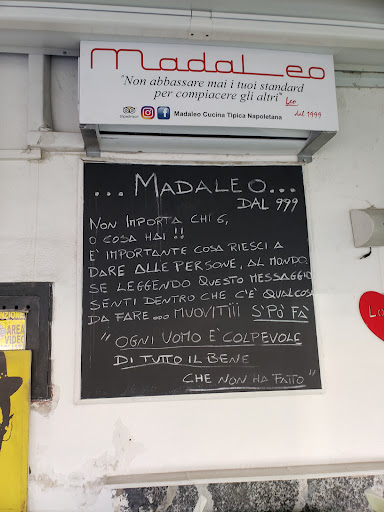 MadaLeo
"Non abbassare mai i tuoi standard
per compiacere gli altri" Leo
Madaleo Cucina Tipica Napoletana
dal 1999
... MADALEO...
DAL 999
NON IMPORTA CHI 6,
O COSA HAI !!
E' IMPORTANTE COSA RIESCI A
DARE ALLE PERSONE, AL MONDO.
SE LEGGENDO QUESTO MESSAGGIO
SENTI DENTRO CHE C'È QUALCOSA
DA FARE... MUOVITiii S'PÒ FÀ
" OGNI UOMO È COLPEVOLE
DI TUTTO IL BENE
CHE NON HA FATTO "
AREA
VIDEO